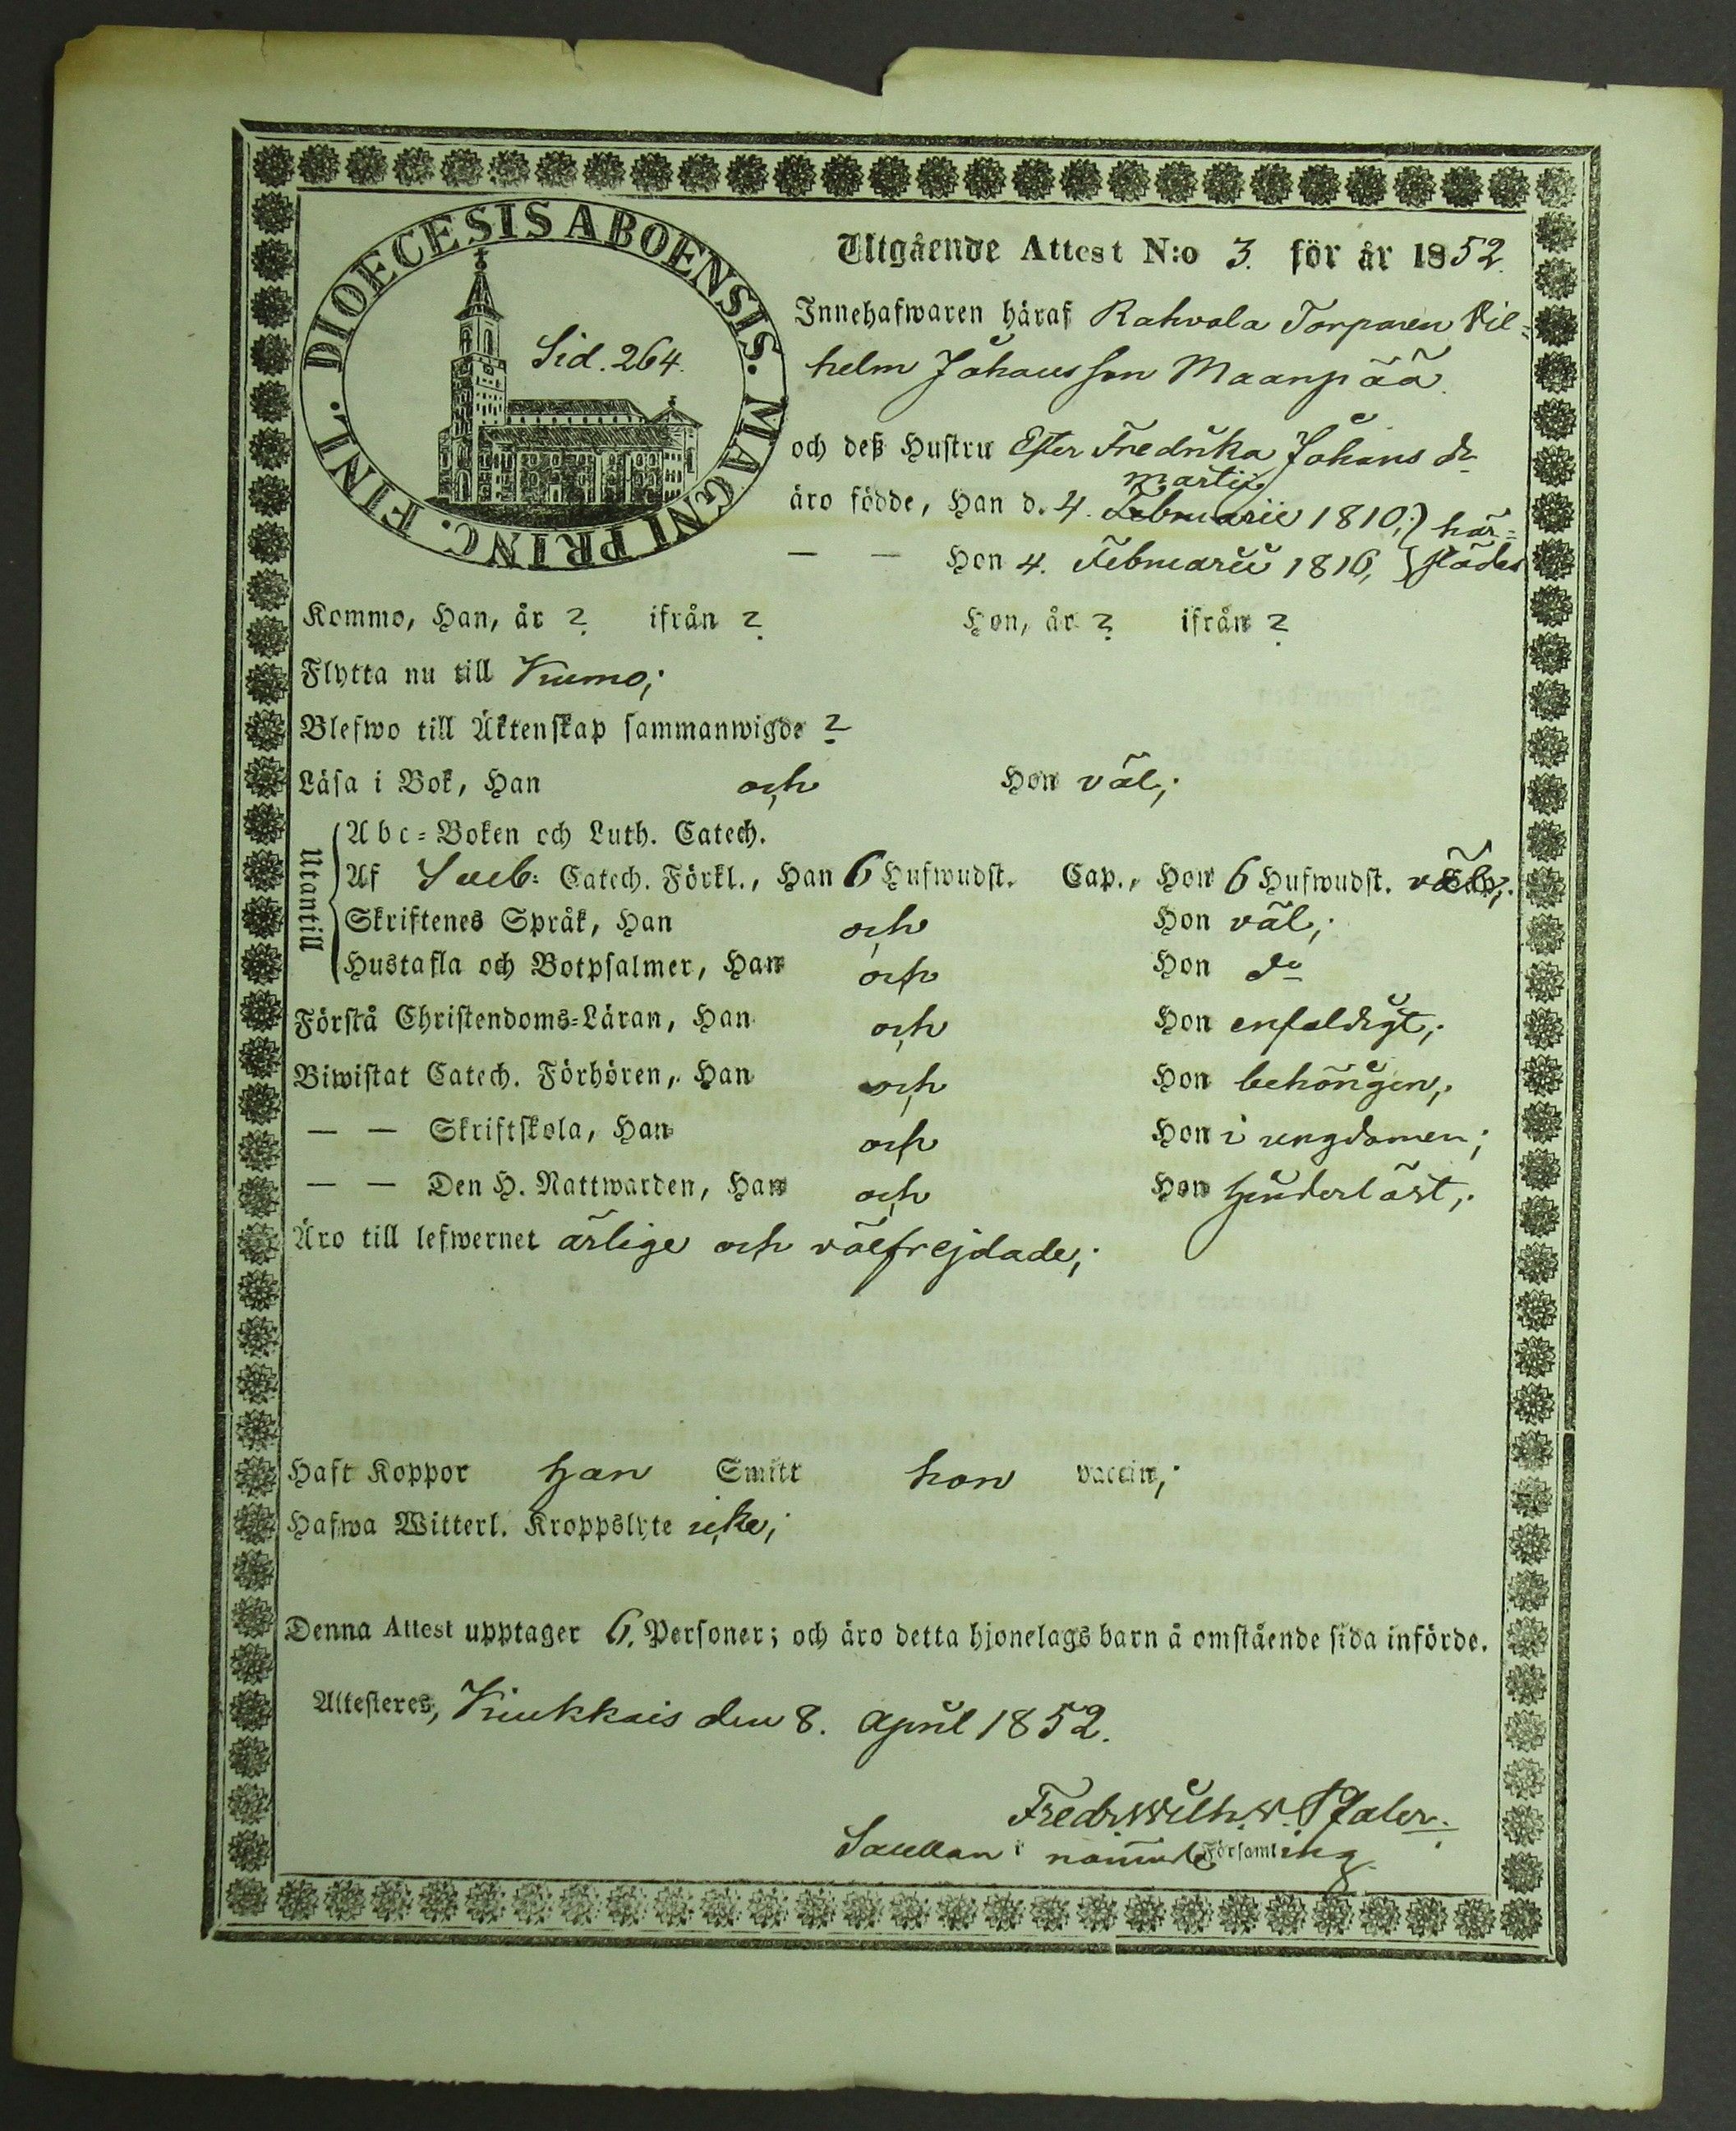 DIOECESIS ABOENSIS. MAGNI PRINC. FINL.
Sid. 264.
Utgående Attest N:o 3. för år 1852.
Innehafwaren häraf Rahvola Torparen Vil=
helm Johansson Maanpää.
och deß Hustru Ester Fredrika Johans dr
Martii
äro födde, Han d. 4. Februarii 1810;} här=
— — Hon 4. Februarii 1816, } städes
Kommo, Han, år ? ifrån ? Hon, år ? ifrån ?
Flytta nu till Kumo;
Blefwo till Äktenskap sammanwigde ?
Läsa i Bok, Han och Hon väl;
Utantill
Abc=Boken och Luth. Catech.
Af Sveb: Catech. Förkl., Han 6 Hufwudst. Cap., Hon 6 Hufwudst. väl;
Skriftenes Språk, Han och Hon väl;
Hustafla och Botpsalmer, Han och Hon do
Förstå Christendoms=Läran, Han och Hon enfaldigt;
Biwistat Catech. Förhören, Han och Hon behörigen;
— — Skriftskola, Han och Hon i ungdomen;
— — Den H. Nattwarden, Han och Hon hinderlöst;
Äro till lefwernet ärlige och välfrejdade;
Haft Koppor han Smitt hon vaccin;
Hafwa Witterl. Kroppslyte icke;
Denna Attest upptager 6. Personer; och äro detta hjonelags barn å omstående sida införde.
Attesteres, Kiukkais den 8. April 1852.
Fredr. Wilh. W. Staler.
i nämnde Församling